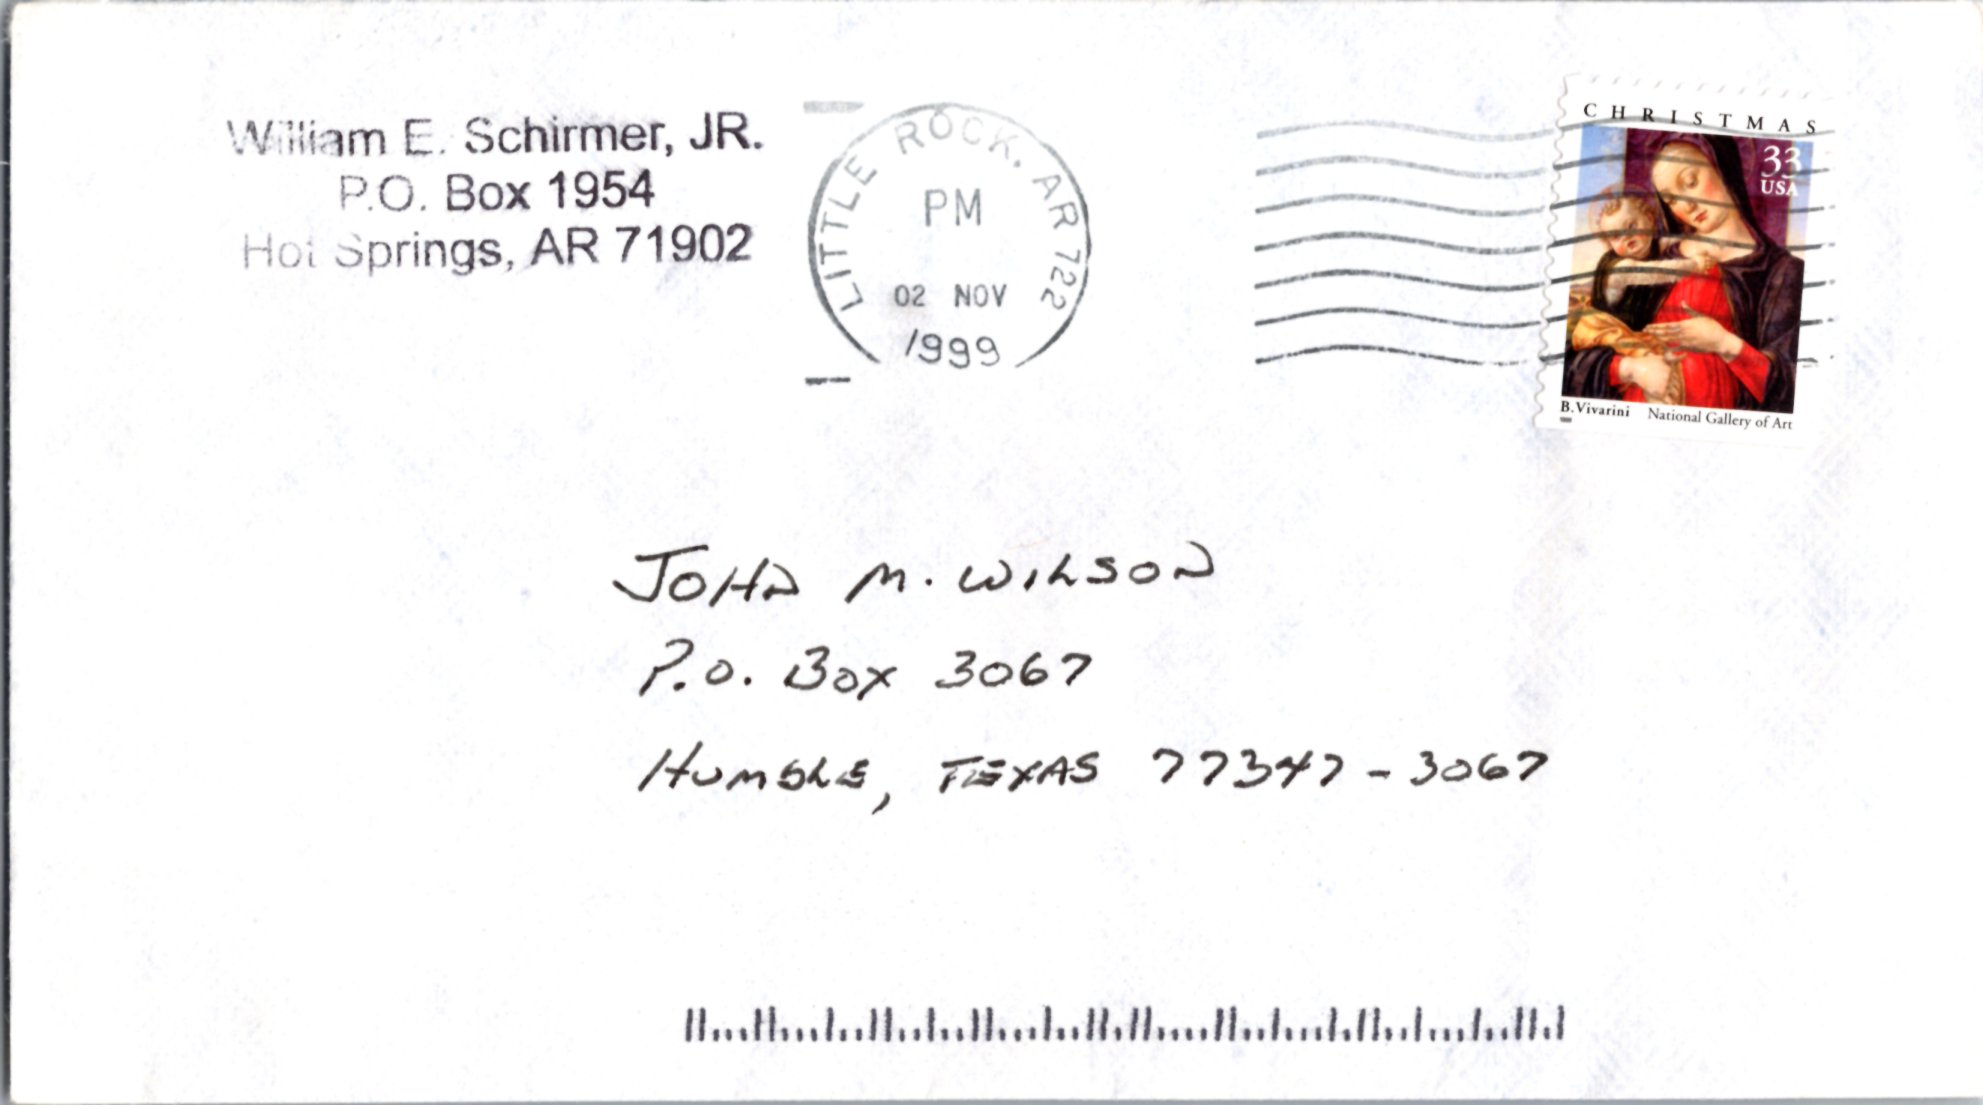 William E. Schirmer, JR.
P.O. Box 1954
Hot Springs, AR 71902
LITTLE ROCK, AR 722
PM
02 NOV
1999
CHRISTMAS
33
USA
B.Vivarini National Gallery of Art
JOHN M. WILSON
P.O. BOX 3067
HUMBLE, TEXAS 77347-3067